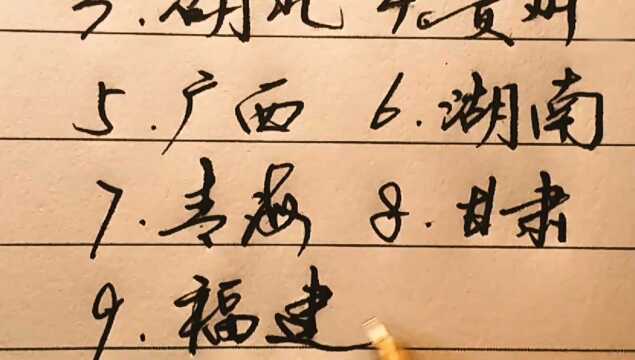 3.湖北 4.贵州
5.广西 6.湖南
7.青海 8.甘肃
9.福建